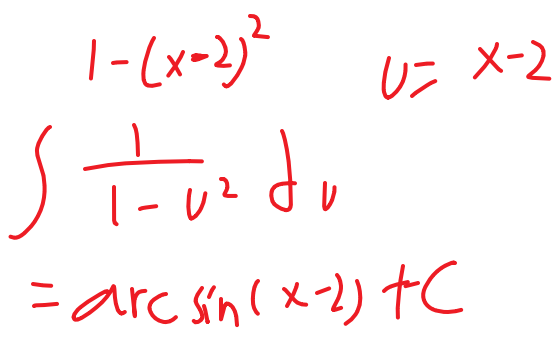 1-(x-2)² u= x-2
∫ 1/(1-u²) du
= arcsin(x-2)+C